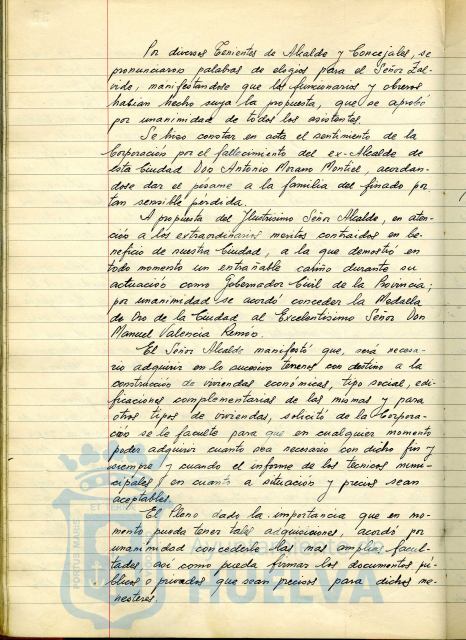 Por diversos Tenientes de Alcalde y Concejales, se
pronunciaron palabras de elogios para el Señor Zal-
vide, manifestandose que los funcionarios y obreros
habian hecho suya la propuesta, que se aprobó
por unanimidad de todos los asistentes.
Se hizo constar en acta el sentimiento de la
Corporación por el fallecimiento del ex-Alcalde de
esta Ciudad Don Antonio Moreno Montiel, acordan-
dose dar el pésame a la familia del finado por
tan sensible perdida.
A propuesta del Ilustrisimo Señor Alcalde, en aten-
ció a los extraordinarios meritos contraidos en be-
neficio de nuestra Ciudad, a la que demostró en
todo momento un entrañable cariño durante su
actuación como Gobernador Civil de la Provincia;
por unanimidad se acordó conceder la Medalla
de Oro de la Ciudad al Excelentisimo Señor Don
Manuel Valencia Remón.
El Señor Alcalde manifestó que, será necesa-
rio adquirir en lo sucesivo terrenos con destino a la
construcción de viviendas económicas, tipo social, edi-
ficaciones complementarias de las mismas y para
otros tipos de viviendas, solicitó de la Corpora-
ción se le faculte para que en cualquier momento
poder adquirir cuanto sea necesario con dicho fin y
siempre y cuando el informe de los tecnicos muni-
cipales en cuanto a situación y precios sean
aceptables.
El Pleno dado la importancia que en mo-
mento pueda tener tales adquisiciones, acordó por
unanimidad concederle las mas amplias facul-
tades, asi como pueda firmar los documentos pú-
blicos o privados que sean precisos para dichos me-
nesteres.
PORTUS MARIS
ET TERRÆ
HUELVA